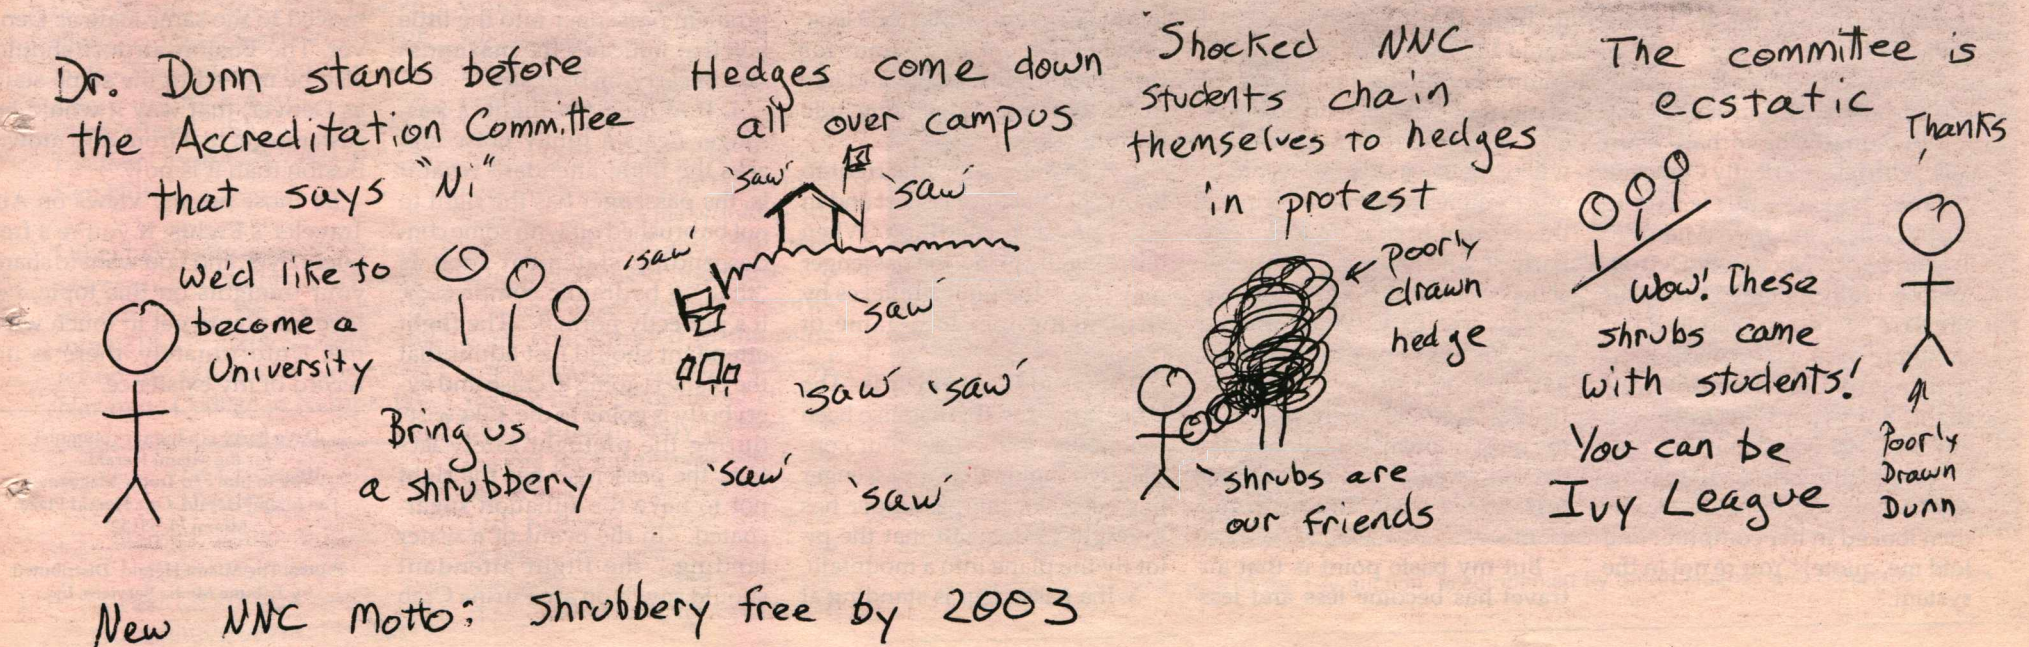 Dr. Dunn stands before
the Accreditation Committee
that says "Ni"
We'd like to
become a
University
Bring us
a shrubbery
Hedges come down
all over campus
'saw'
'saw'
'saw'
'saw'
'saw'
'saw'
'saw'
'saw'
Shocked NNC
students chain
themselves to hedges
in protest
poorly
drawn
hedge
shrubs are
our friends
The committee is
ecstatic
Thanks
Wow! These
shrubs came
with students!
You can be
Ivy League
Poorly
Drawn
Dunn
New NNC Motto: Shrubbery free by 2003